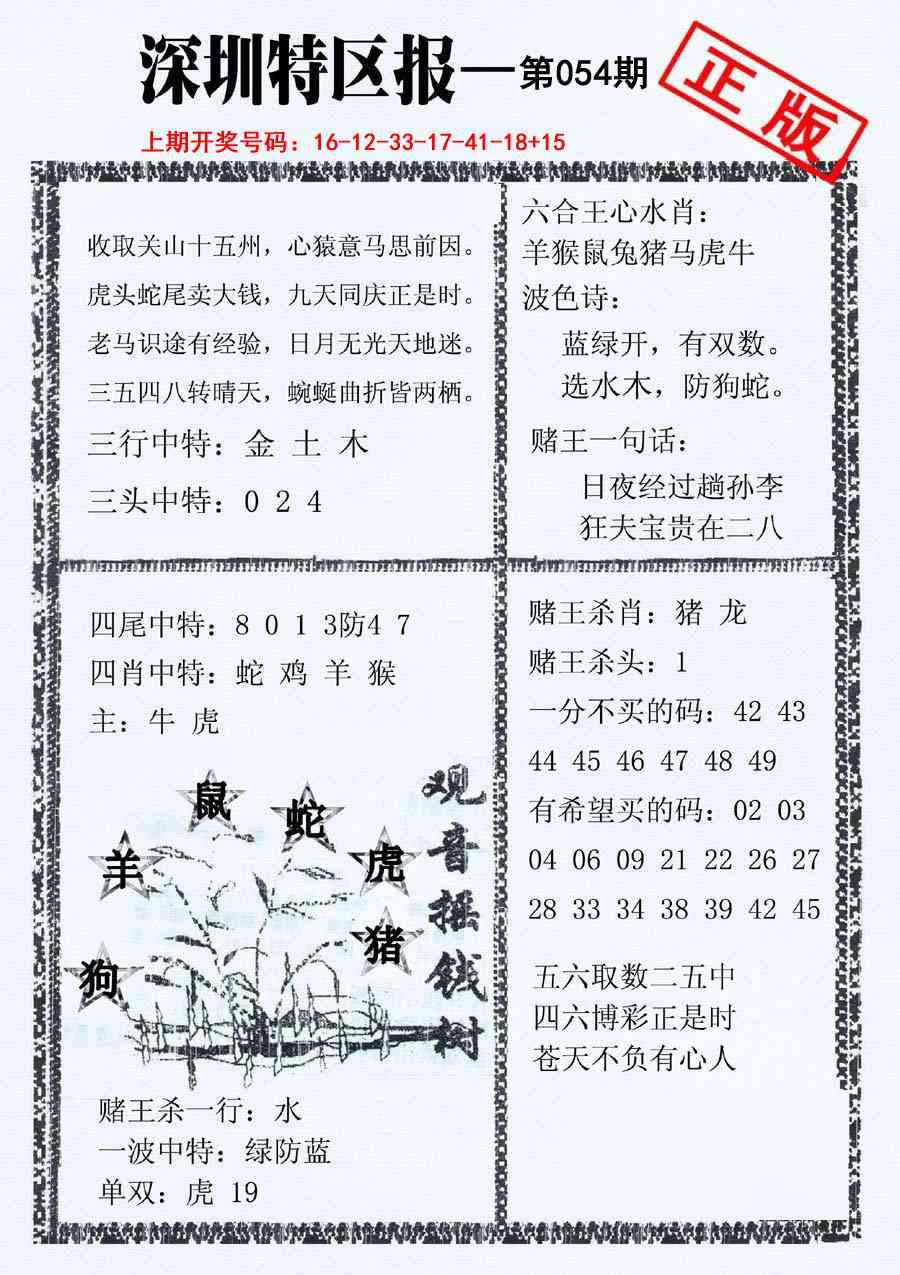 深圳特区报—第054期
正版
上期开奖号码：16-12-33-17-41-18+15
收取关山十五州，心猿意马思前因。
虎头蛇尾卖大钱，九天同庆正是时。
老马识途有经验，日月无光天地迷。
三五四八转晴天，蜿蜒曲折皆两栖。
三行中特：金 土 木
三头中特：0 2 4
六合王心水肖：
羊猴鼠兔猪马虎牛
波色诗：
蓝绿开，有双数。
选水木，防狗蛇。
赌王一句话：
日夜经过趟孙李
狂夫宝贵在二八
四尾中特：8 0 1 3防4 7
四肖中特：蛇 鸡 羊 猴
主：牛 虎
鼠
蛇
羊
虎
猪
狗
观音摇钱树
赌王杀一行：水
一波中特：绿防蓝
单双：虎 19
赌王杀肖：猪 龙
赌王杀头：1
一分不买的码：42 43
44 45 46 47 48 49
有希望买的码：02 03
04 06 09 21 22 26 27
28 33 34 38 39 42 45
五六取数二五中
四六博彩正是时
苍天不负有心人